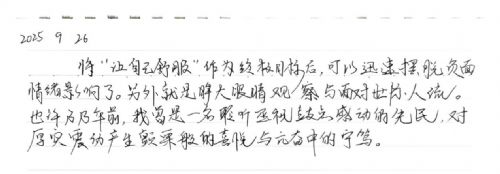 2025 9 26
将“让自己舒服”作为终极目标后，可以迅速摆脱负面
情绪影响了。另外就是睁大眼睛观察与面对世俗人流。
也许万万年前，我曾是一名聆听巫祝鼓声感动的先民，对
厚实震动产生般的喜悦与亢奋中的宁笃。